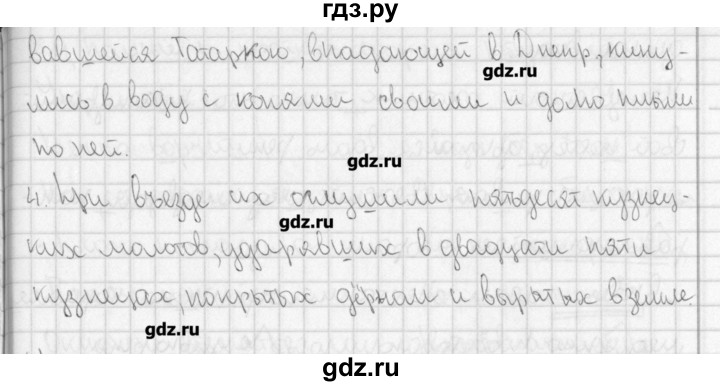 гдз.ру
вавшейся Татаркою, впадающей в Днепр, кину-
gdz.ru
лись в воду с конями своими и долго плыли
по ней.
gdz.ru
4. При въезде их оглушили пятьдесят кузнец-
gdz.ru
ких молотов, ударявших в двадцати пяти
кузнецах, покрытых дёрном и вырытых в земле.
gdz.ru
gdz.ru